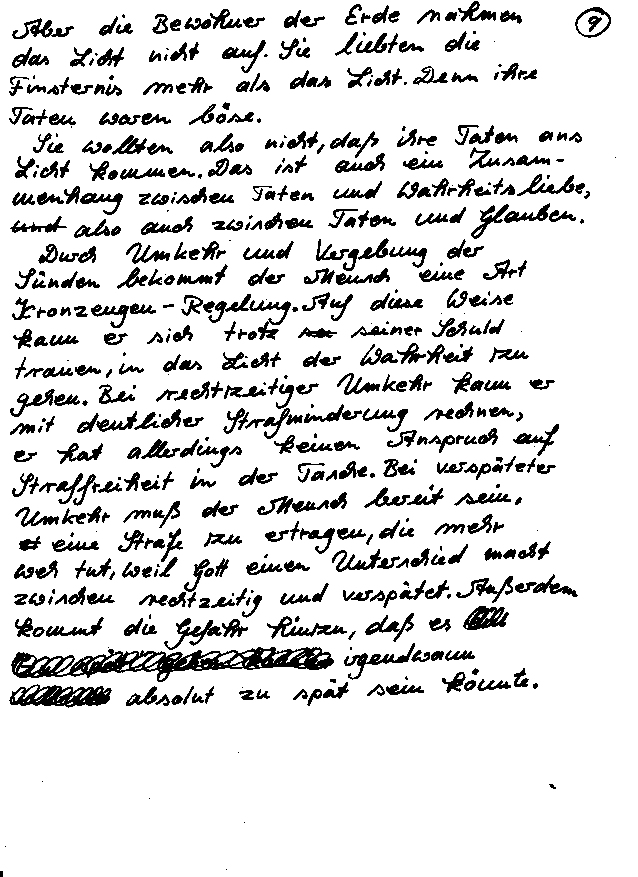 Aber die Bewohner der Erde nahmen 9
das Licht nicht auf. Sie liebten die
Finsternis mehr als das Licht. Denn ihre
Taten waren böse.
Sie wollten also nicht, daß ihre Taten ans
Licht kommen. Das ist auch ein Zusam-
menhang zwischen Taten und Wahrheitsliebe,
und also auch zwischen Taten und Glauben.
Durch Umkehr und Vergebung der
Sünden bekommt der Mensch eine Art
Kronzeugen-Regelung. Auf diese Weise
kann er sich trotz seiner Schuld
trauen, in das Licht der Wahrheit zu
gehen. Bei rechtzeitiger Umkehr kann er
mit deutlicher Strafminderung rechnen,
er hat allerdings keinen Anspruch auf
Straffreiheit in der Tasche. Bei verspäteter
Umkehr muß der Mensch bereit sein,
eine Strafe zu ertragen, die mehr
weh tut, weil Gott einen Unterschied macht
zwischen rechtzeitig und verspätet. Außerdem
kommt die Gefahr hinzu, daß es
irgendwann
absolut zu spät sein könnte.